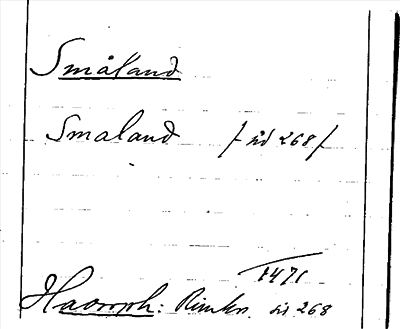 Småland
Smaland / sid 268 /
1471
Haorph: Rimkr. sid 268